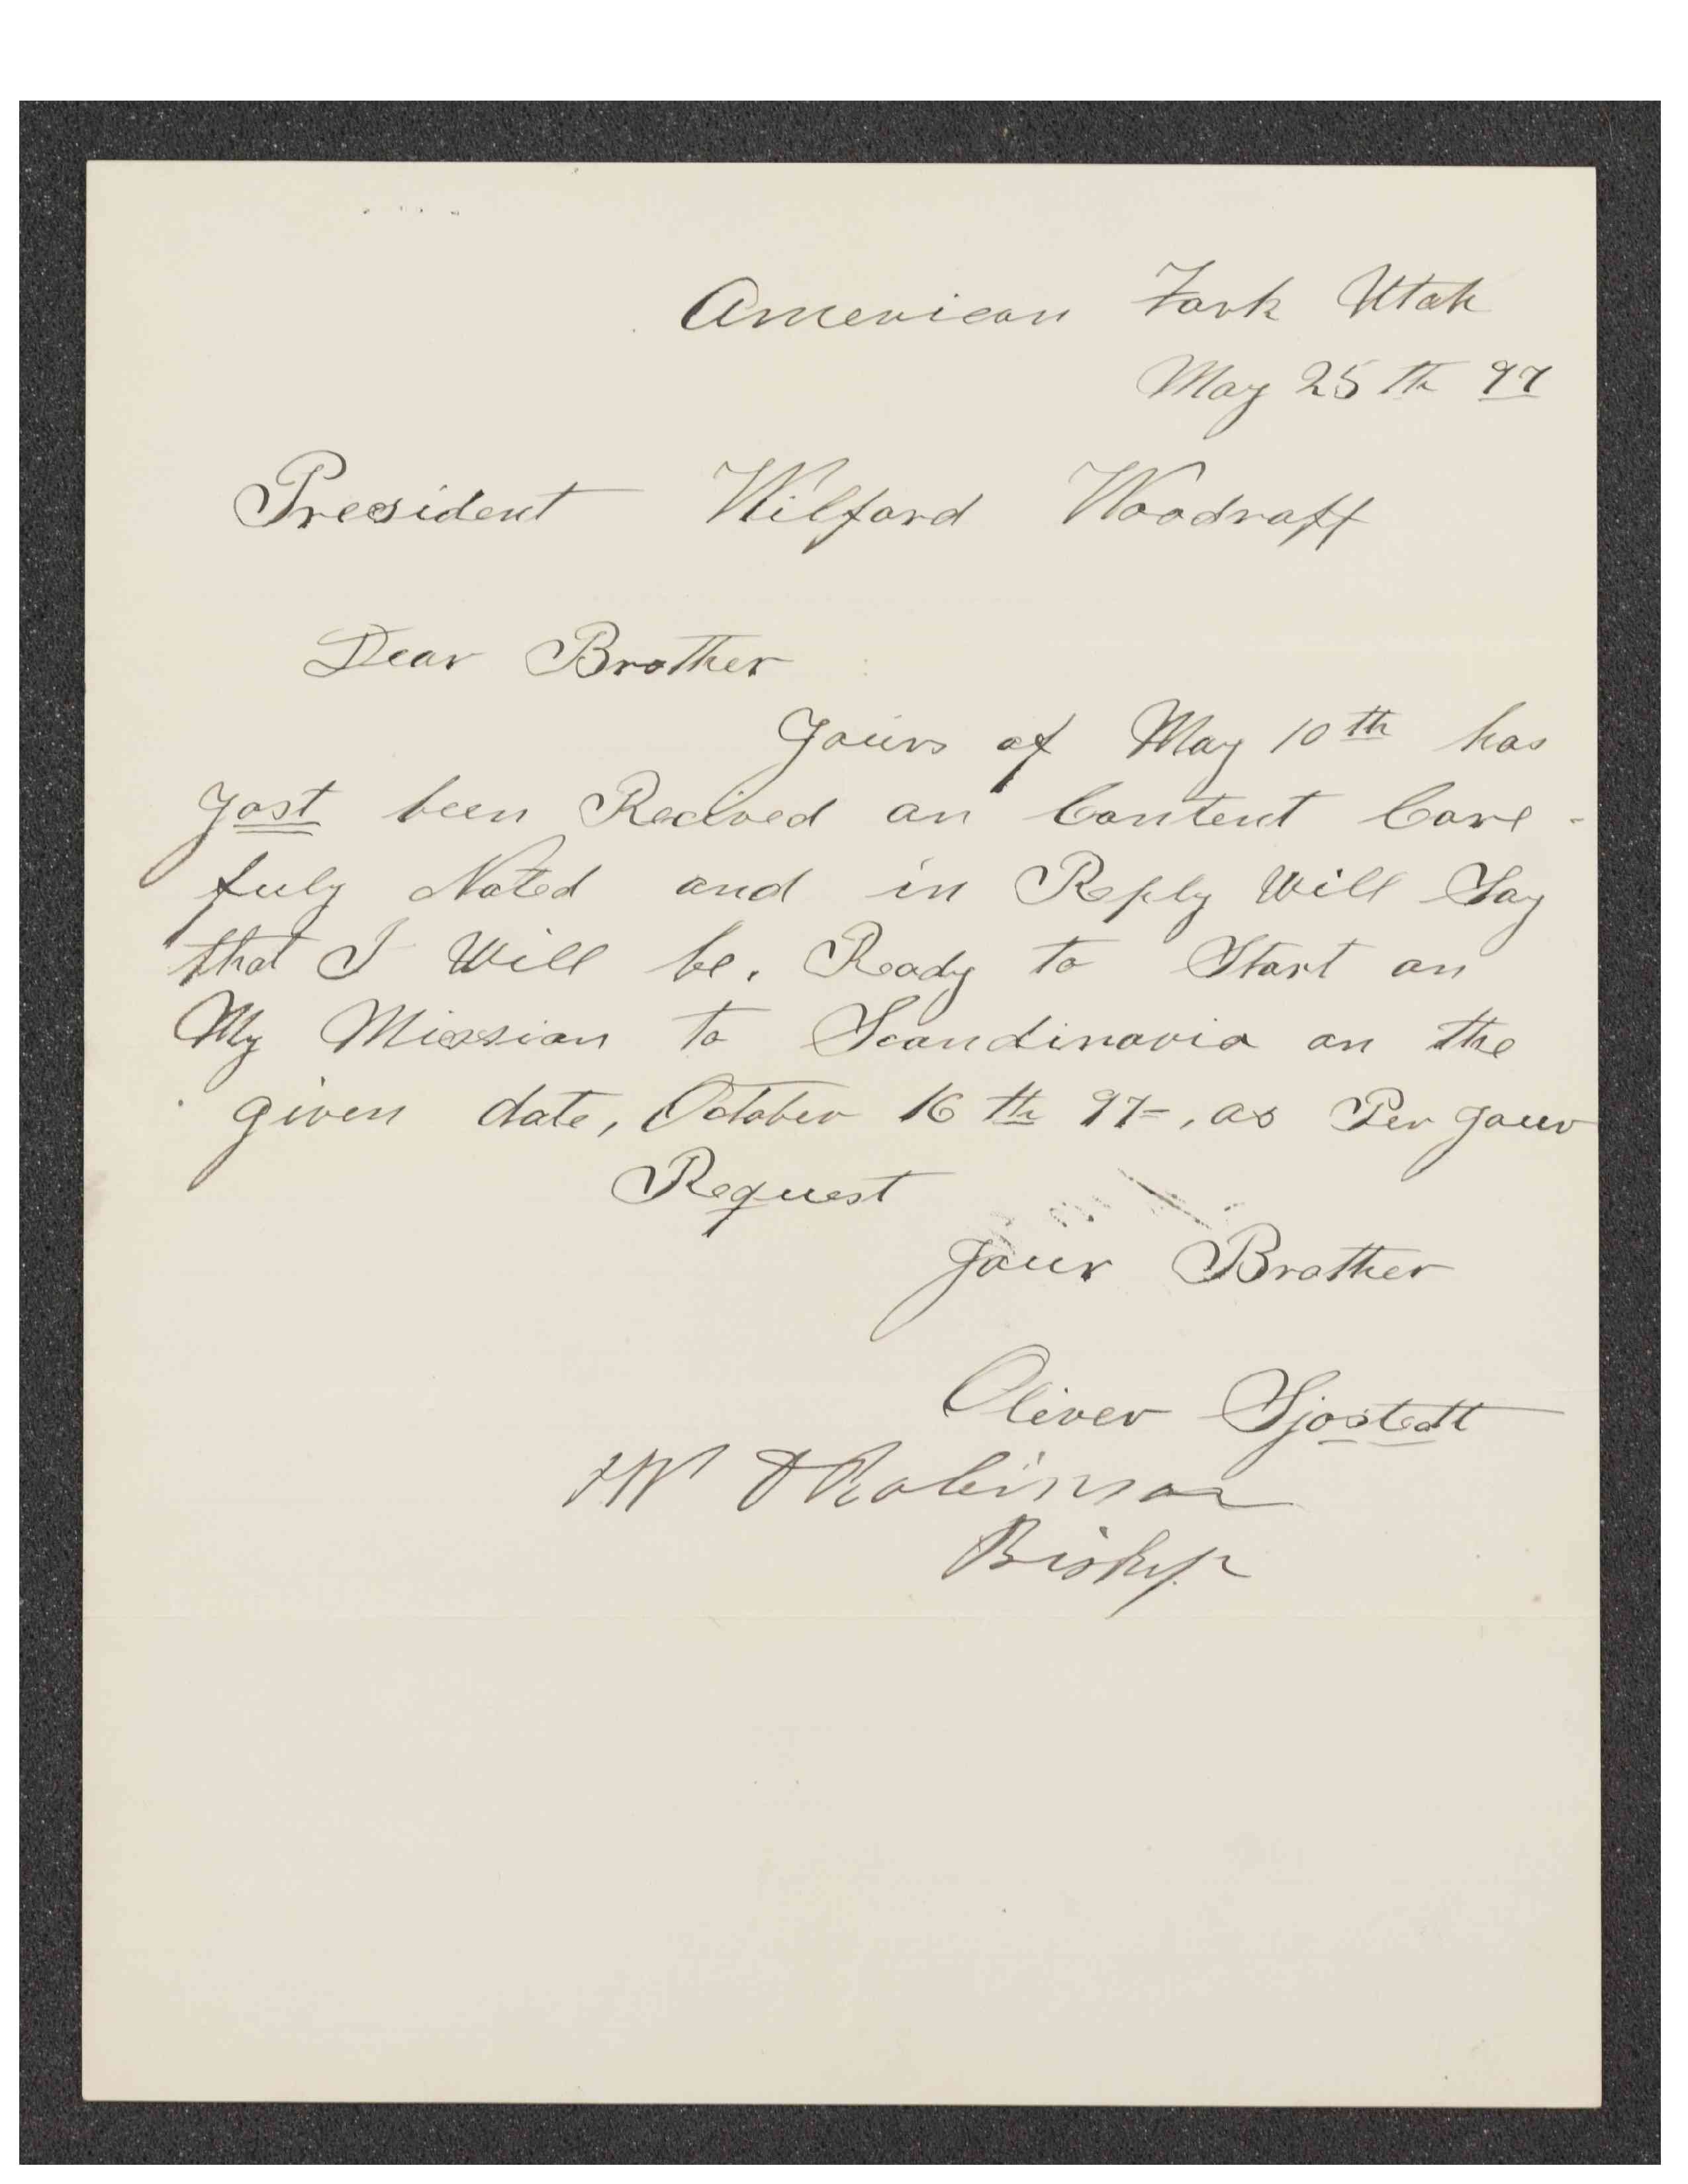 American Fork Utah
May 25th 97
President Wilford Woodruff
Dear Brother
Yours of May 10th has
Jost been Recived an Content Care-
fuly Noted and in Reply Will Say
that I Will be. Ready to Start on
My Mission to Scandinavia on the
given date, October 16th 97-, as Per your
Request
Your Brother
Oliver Sjostedt
Robinson
Bishop